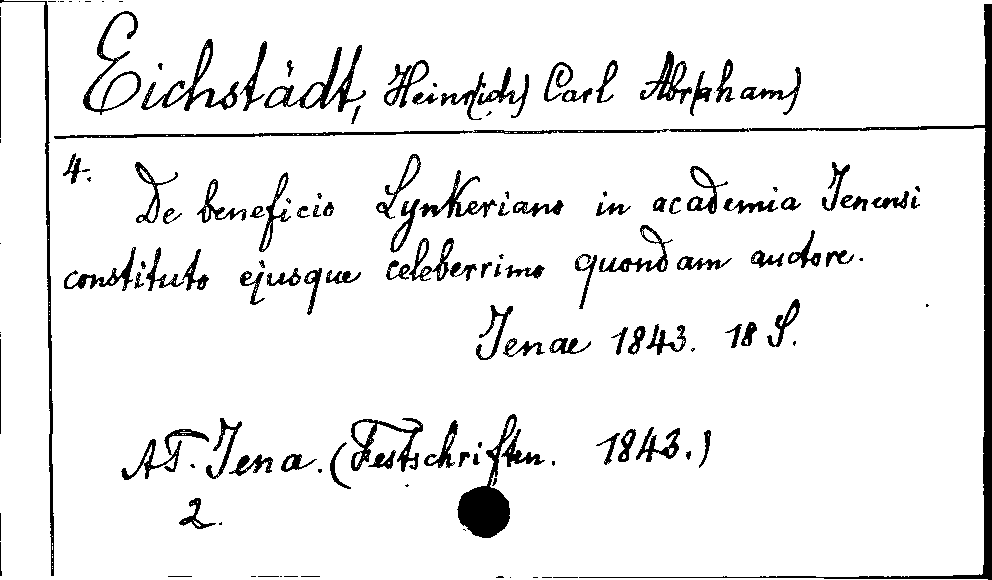 Eichstädt, Heinr(ich) Carl Abr(aham)
4.
De beneficio Lynkeriano in academia Jenensi
constituto ejusque celeberrimo quondam auctore.
Jenae 1843. 18 S.
AT. Jena. (Festschriften. 1843.)
2.